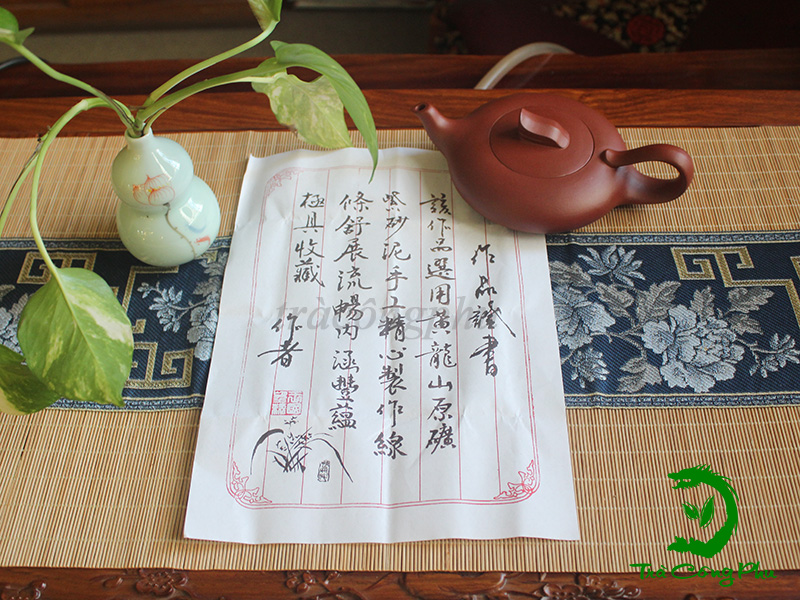 作品證書
該作品選用黃龍山原礦
紫砂泥手工精心製作線
條舒展流暢内涵豐蘊
極具收藏
作者
tràcôngphu
Trà Công Phu